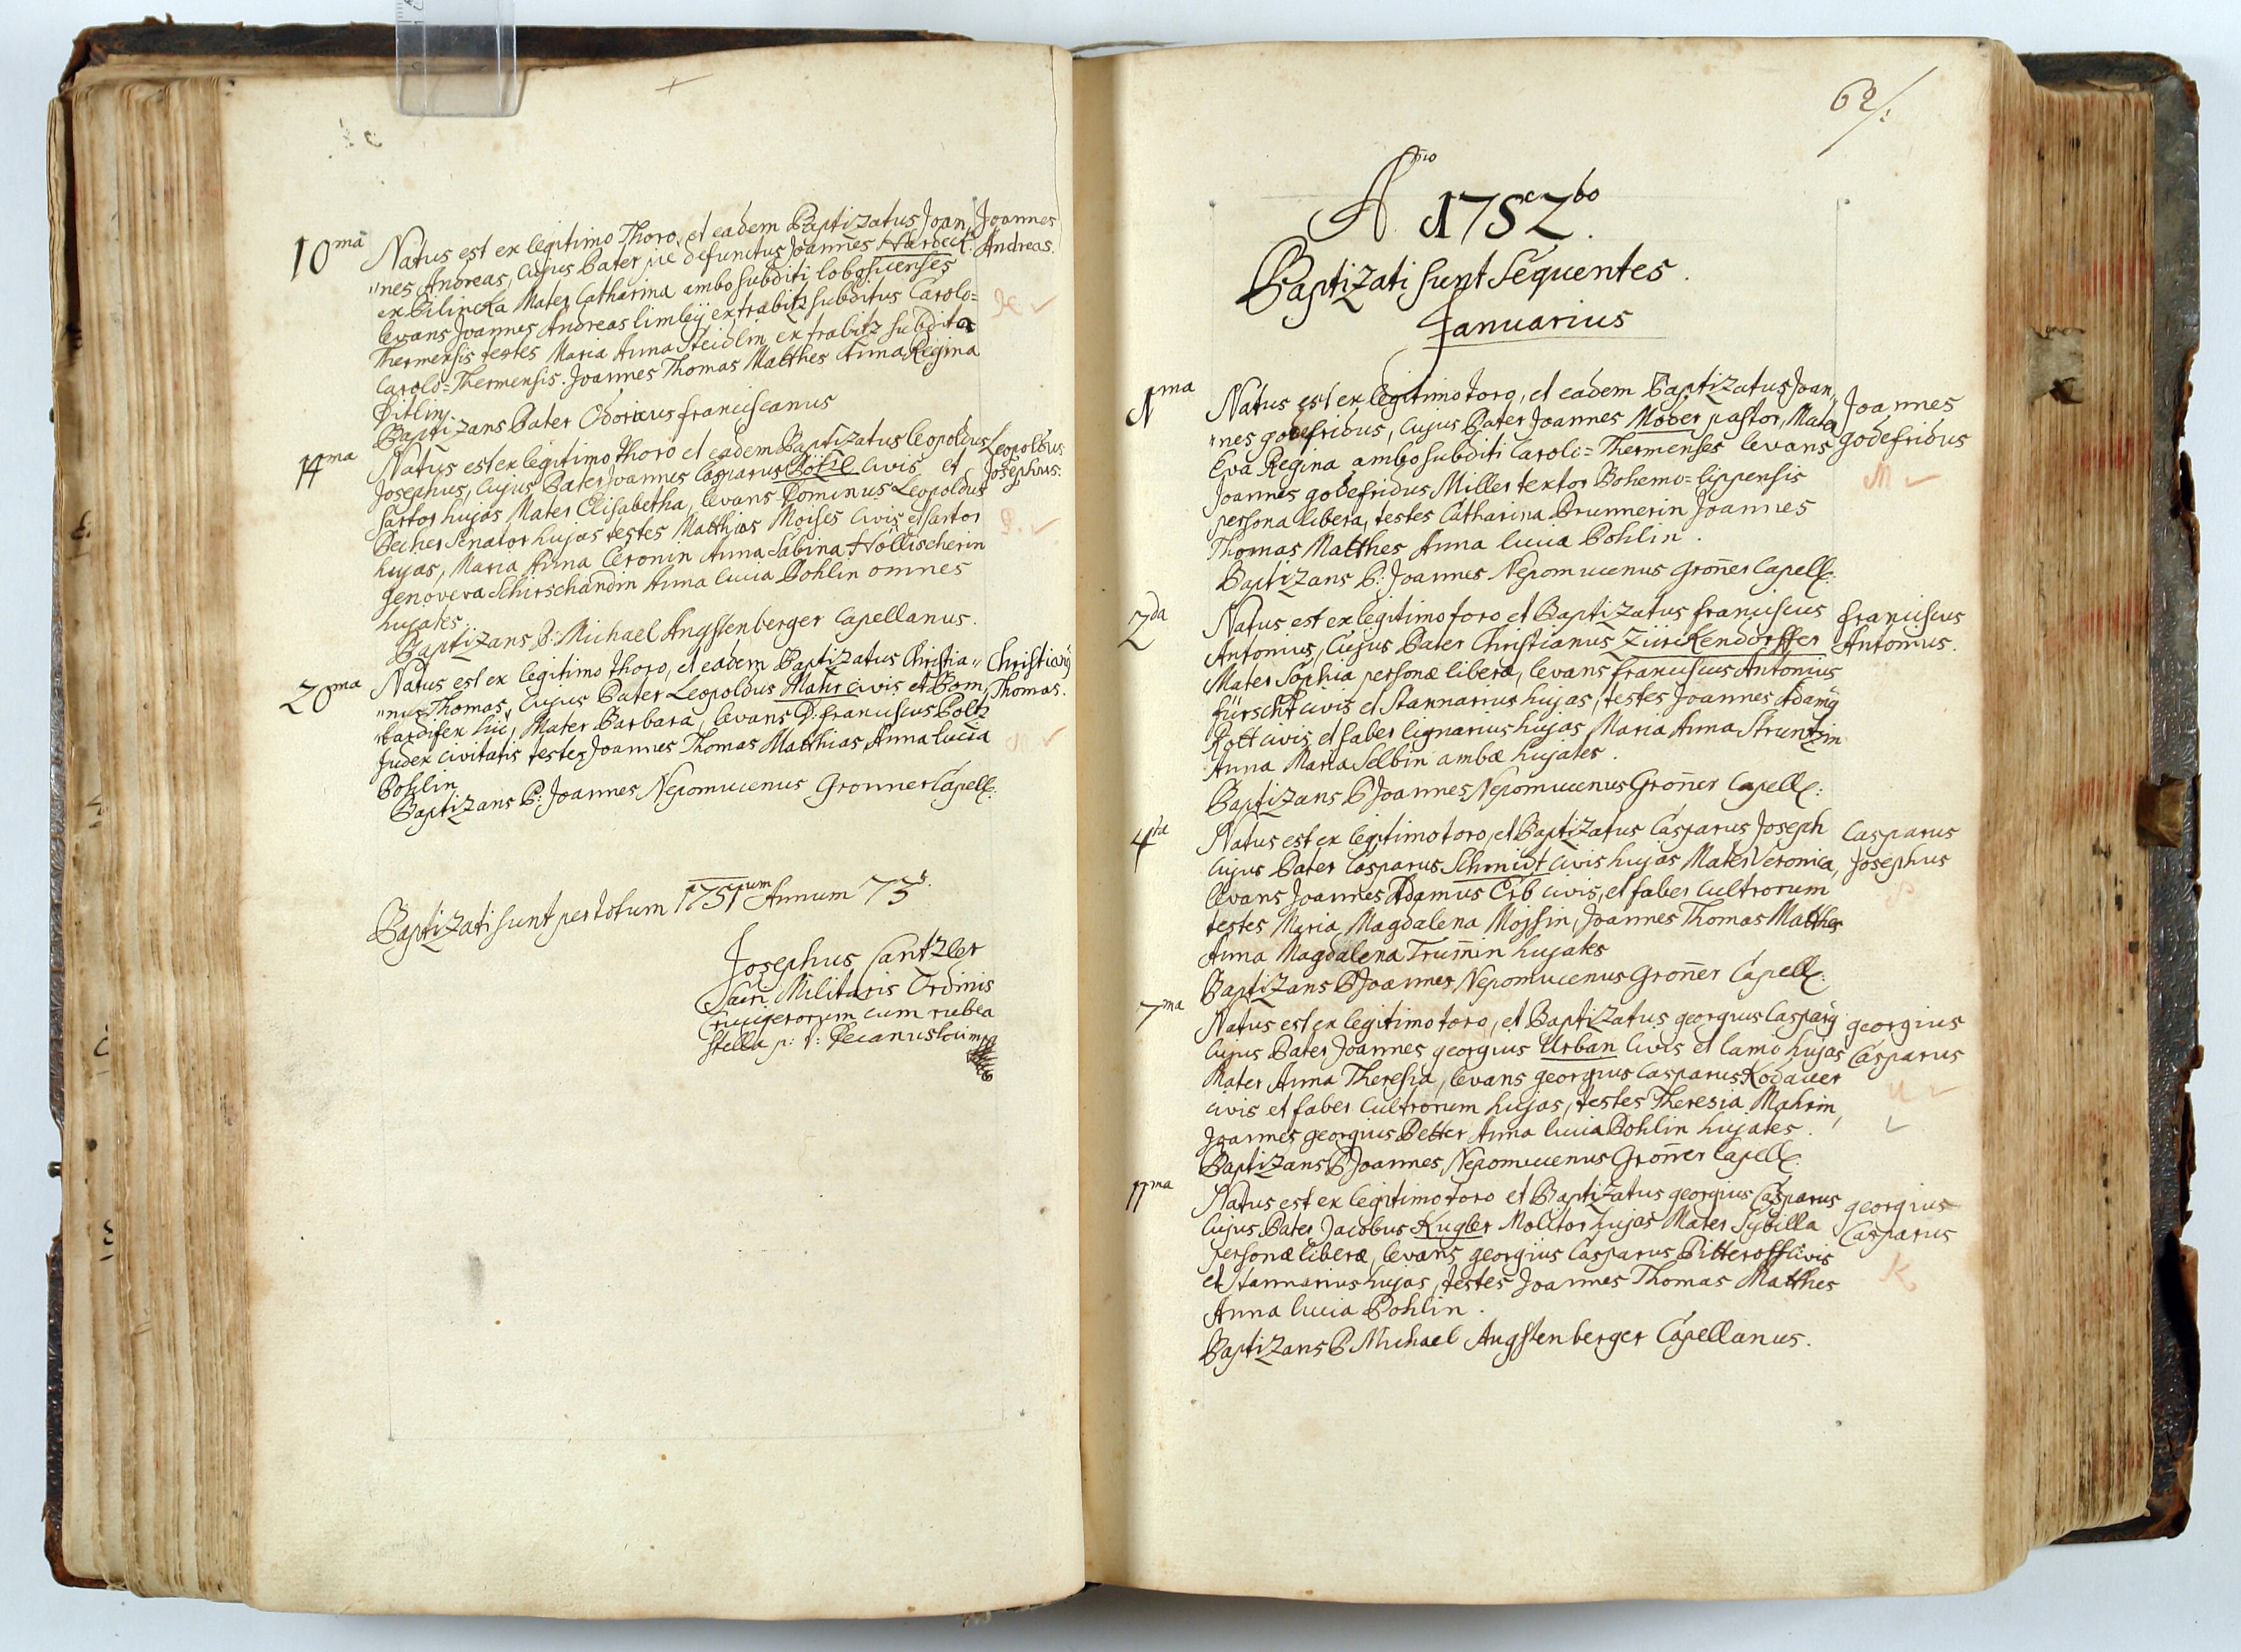 10ma Natus est ex legitimo Thoro, et eadem Baptizatus Joan, Joannes
"nes Andreas, Cujus Pater pie defunctus Joannes Hardeck Andreas.
ex Pilincka Mater Catharina ambo subditi lobgsuenses
levans Joannes Andreas limleÿ ex trabitz subditus Carolo=
Thermensis testes Maria Anna Steidlin ex trabitz subdita
Carolo=Thermensis. Joannes Thomas Matthes Anna Regina
Pitlin.
Baptizans Pater Odoricus franciscanus
14ma Natus est ex legitimo Thoro et eadem Baptizatus leopoldus Leopoldus
Josephus, Cujus Pater Joannes Casparus civis et Josephus.
Sartor hujas Mater Elisabetha, levans Dominus Leopoldus
Becher Senator hujas testes Matthias Moises Civis et sartor
hujas, Maria Anna Ceronin Anna Sabina Hollischerin
Genovera Schirschandin Anna lucia Pohlin omnes
hujates.
Baptizans P: Michael Angstenberger Capellanus.
20ma Natus est ex legitimo thoro, et eadem Baptizatus Christia" Christianÿ
"nus Thomas, Cujus Pater Leopoldus Mahr civis et Bom, Thomas.
"bardifex hic, Mater Barbara, levans D: franciscus Poltz
Judex civitatis testes Joannes Thomas Matthias Anna lucia
Pohlin
Baptizans P: Joannes Nepomucenus Gronner Capell:
Baptizati sunt per totum 1751mum Annum 73
Josephus Cantzler
Sacri Militaris Ordinis
Crucigerorum cum rubea
stella p: t: Decanus loci mp
62/:
Ao 1752do.
Baptizati sunt Sequentes.
Januarius
1ma Natus est ex legitimo toro, et eadem Baptizatus Joan, Joannes
"nes godefridus, Cujus Pater Joannes Moder pastor, Mater godefridus
Eva Regina ambo subditi Carolo=Thermenses levans
M
Joannes godefridus Miller textor Bohemo=lippensis
persona libera, testes Catharina Brunnerin Joannes
Thomas Matthes Anna lucia Pohlin.
Baptizans P: Joannes Nepomucenus Groner Capell:
2da Natus est ex legitimo toro et Baptizatus franciscus franciscus
Antonius, Cujus Pater Christianus Zürckendörffer Antonius.
Mater Sophia personæ liberæ, levans franciscus Antonius
fürscht civis et Stannarius hujas, testes Joannes Adamÿ
Rott civis et faber lignarius hujas Maria Anna Struntzin
Anna Maria Selbin ambæ hujates.
Baptizans P Joannes Nepomucenus Groner Capell:
4ta Natus est ex legitimo toro, et Baptizatus Casparus Joseph Casparus
Cujus Pater Casparus Schmidt civis hujas Mater Veronica, Josephus
levans Joannes Adamus Erb civis, et faber Cultrorum
testes Maria Magdalena Mojsin, Joannes Thomas Matthes
Anna Magdalena Trumin hujates
Baptizans P Joannes Nepomucenus Groner Capell:
7ma Natus est ex legitimo toro, et Baptizatus georgius Casparÿ georgius
Cujus Pater Joannes georgius Urban Civis et lanio hujas Casparus
Mater Anna Theresia, levans georgius Casparus Kodauer
civis et faber Cultrorum hujas, testes Theresia Mahrin,
Joannes georgius Petter Anna lucia Pohlin hujates.
Baptizans P Joannes Nepomucenus Groner Capell:
11ma Natus est ex legitimo toro et Baptizatus georgius Casparus georgius
Cujus Pater Jacobus Kugler Molitor hujas Mater Sybilla Casparus
personæ liberæ, levans georgius Casparus Pitteroff civis
K
et Stannarius hujas, testes Joannes Thomas Matthes
Anna lucia Pohlin.
Baptizans P Michael Angstenberger Capellanus.